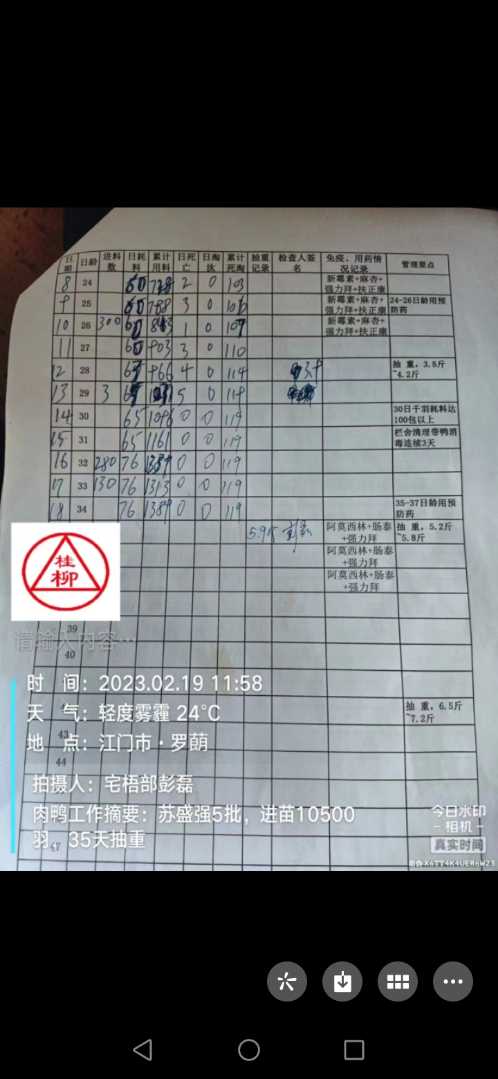 日期 日龄 进料数 日耗料 累计用料 日死亡 日淘汰 累计死淘 抽重记录 检查人签名 免疫、用药情况记录 管理要点
8 24 60 728 2 0 103 新霉素+麻杏+强力拜+扶正康
9 25 60 788 3 0 106 新霉素+麻杏+强力拜+扶正康 24-26日龄用预防药
10 26 300 1 0 107 新霉素+麻杏+强力拜+扶正康
11 27 903 3 0 110
12 28 966 4 0 114 抽重,3.5斤~4.2斤
13 29 3 5 0 119
14 30 65 1096 0 0 119 30日千羽耗料达100包以上
15 31 65 1161 0 0 119 栏舍清理带鸭消毒连续3天
16 32 280 76 0 0 119
17 33 130 76 1313 0 0 119
18 34 76 1389 0 0 119 35-37日龄用预防药
阿莫西林+肠泰+强力拜 抽重,5.2斤~5.8斤
阿莫西林+肠泰+强力拜
阿莫西林+肠泰+强力拜
桂柳
请输入内容...
39
40
时 间:2023.02.19 11:58
天 气:轻度雾霾 24℃
抽重,6.5斤~7.2斤
地 点:江门市·罗萌
43
44
拍摄人:宅梧部彭磊
肉鸭工作摘要:苏盛强5批,进苗10500
羽、35天抽重
47
今日水印
-相机-
真实时间